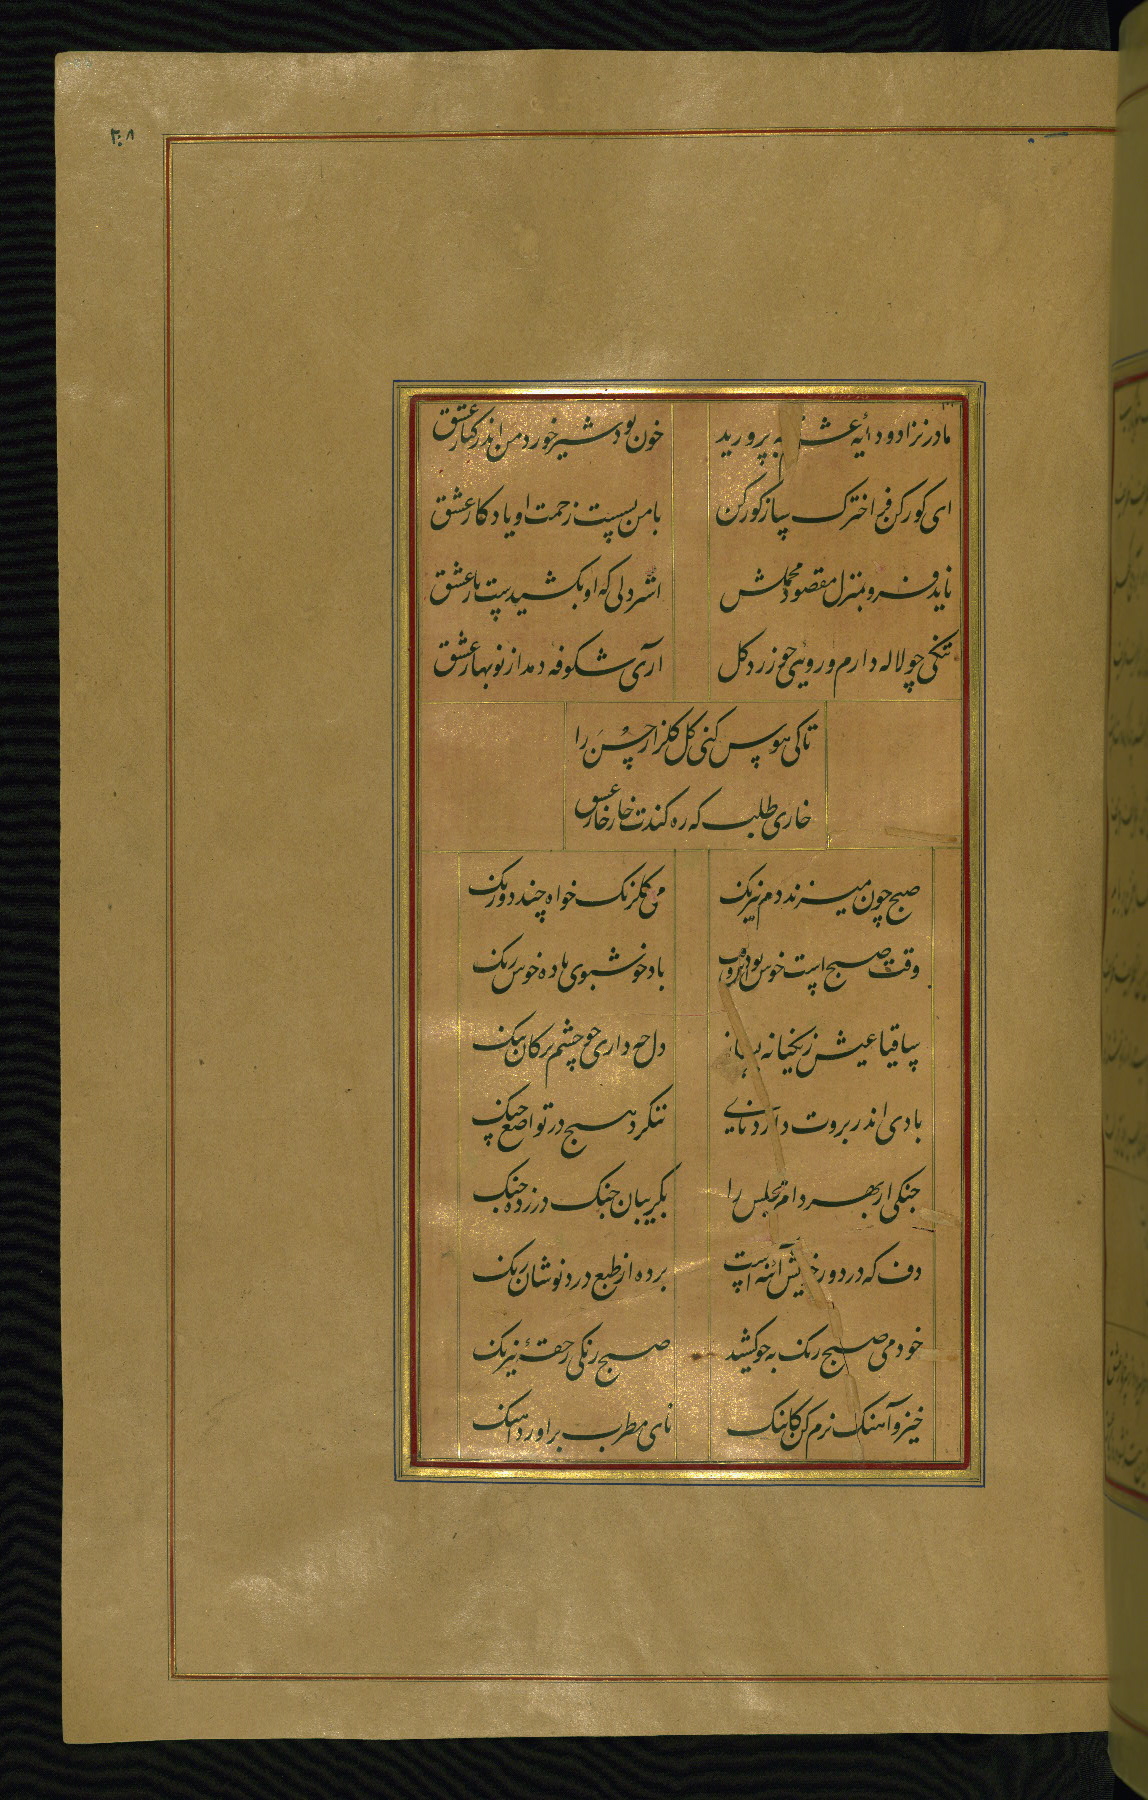 ۳۰۸
مادر نزاد و دایه عشقم به پرورید خون بود شیر خوردم من اندر کنار عشق
ای کورکن اختر کورکن با من بسیست زحمت او یادکار عشق
ناید فرو بمنزل مقصود محملش اشتر دلی که او بکشیدست بار عشق
چو لاله دارم و رویی چو زرد کل اری شکوفه دمد از نوبهار عشق
تا کی هوس کنی کل کلزار حسن را
خاری طلب که ره کندت خار خار عشق
صبح چون میزند دم نیرنک می کلرنک خواه چند درنک
وقت صبح است خوش بود باد خوشبوی باده خوش رنک
ساقیا عیش دل چه داری چو چشم ترکان تنک
بادی اندر بروت دارد نای ننکرد هیچ در تواضع چنک
چنکی از بهر دام مجلس را بکریبان چنک در زده چنک
دف که در دور خویش آینه است برده از طبع درد نوشان زنک
خود می صبح رنک به چو کشید صبح رنکی ز حقهٔ نیرنک
خیز و آهنک نرم کن کاینک نای مطرب براورد آهنک